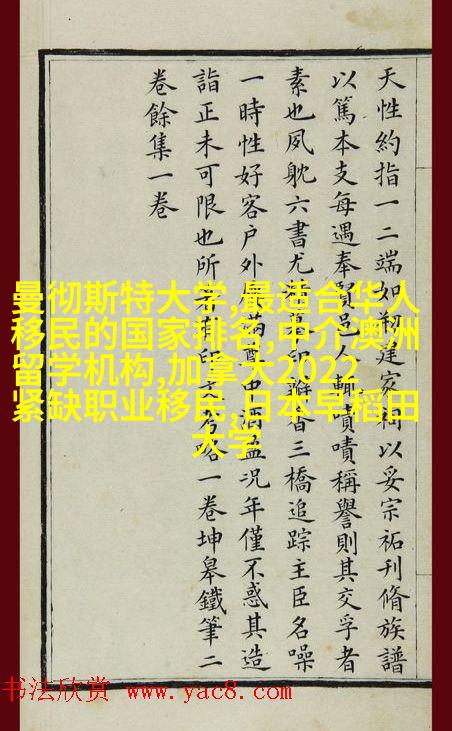 天性約指一二端如剏建家祠以妥宗祏刊脩族譜
以篤本支每遇奉賢邑人輒嘖嘖稱譽則其交孚者
素也夙躭六書尤印瓣香三橋追踪主臣名噪
一時性好客户外滿中酒盈况年僅不惑其造
詣正未可限也所著印一卷坤皋鐵筆二
卷餘集一卷
曼彻斯特大学,最适合华人
移民的国家排名,中介澳洲
留学机构,加拿大2022
紧缺职业移民,日本早稻田
大学
书法欣赏 www.yac8.com